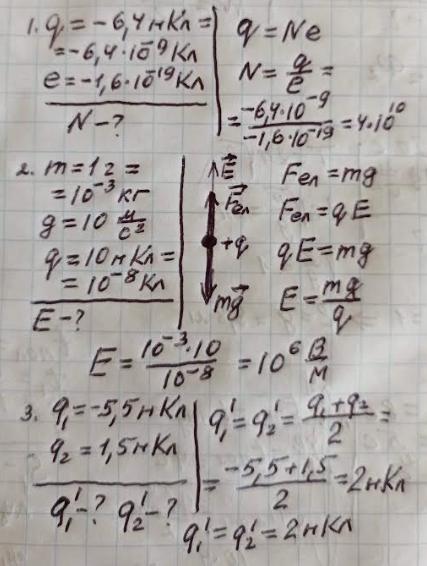 1. q = -6,4 нКл =
= -6,4·10⁻⁹ Кл
e = -1,6·10⁻¹⁹ Кл
N - ?
q = Ne
N = q/e =
= -6,4·10⁻⁹/-1,6·10⁻¹⁹ = 4·10¹⁰
2. m = 1 г =
= 10⁻³ кг
g = 10 м/с²
q = 10 нКл =
= 10⁻⁸ Кл
E - ?
E⃗
F⃗эл
+q
mg⃗
Fэл = mg
Fэл = qE
qE = mg
E = mg/q
E = 10⁻³·10/10⁻⁸ = 10⁶ В/м
3. q₁ = -5,5 нКл
q₂ = 1,5 нКл
q₁' - ? q₂' - ?
q₁' = q₂' = q₁ + q₂/2 =
= -5,5 + 1,5/2 = 2 нКл
q₁' = q₂' = 2 нКл